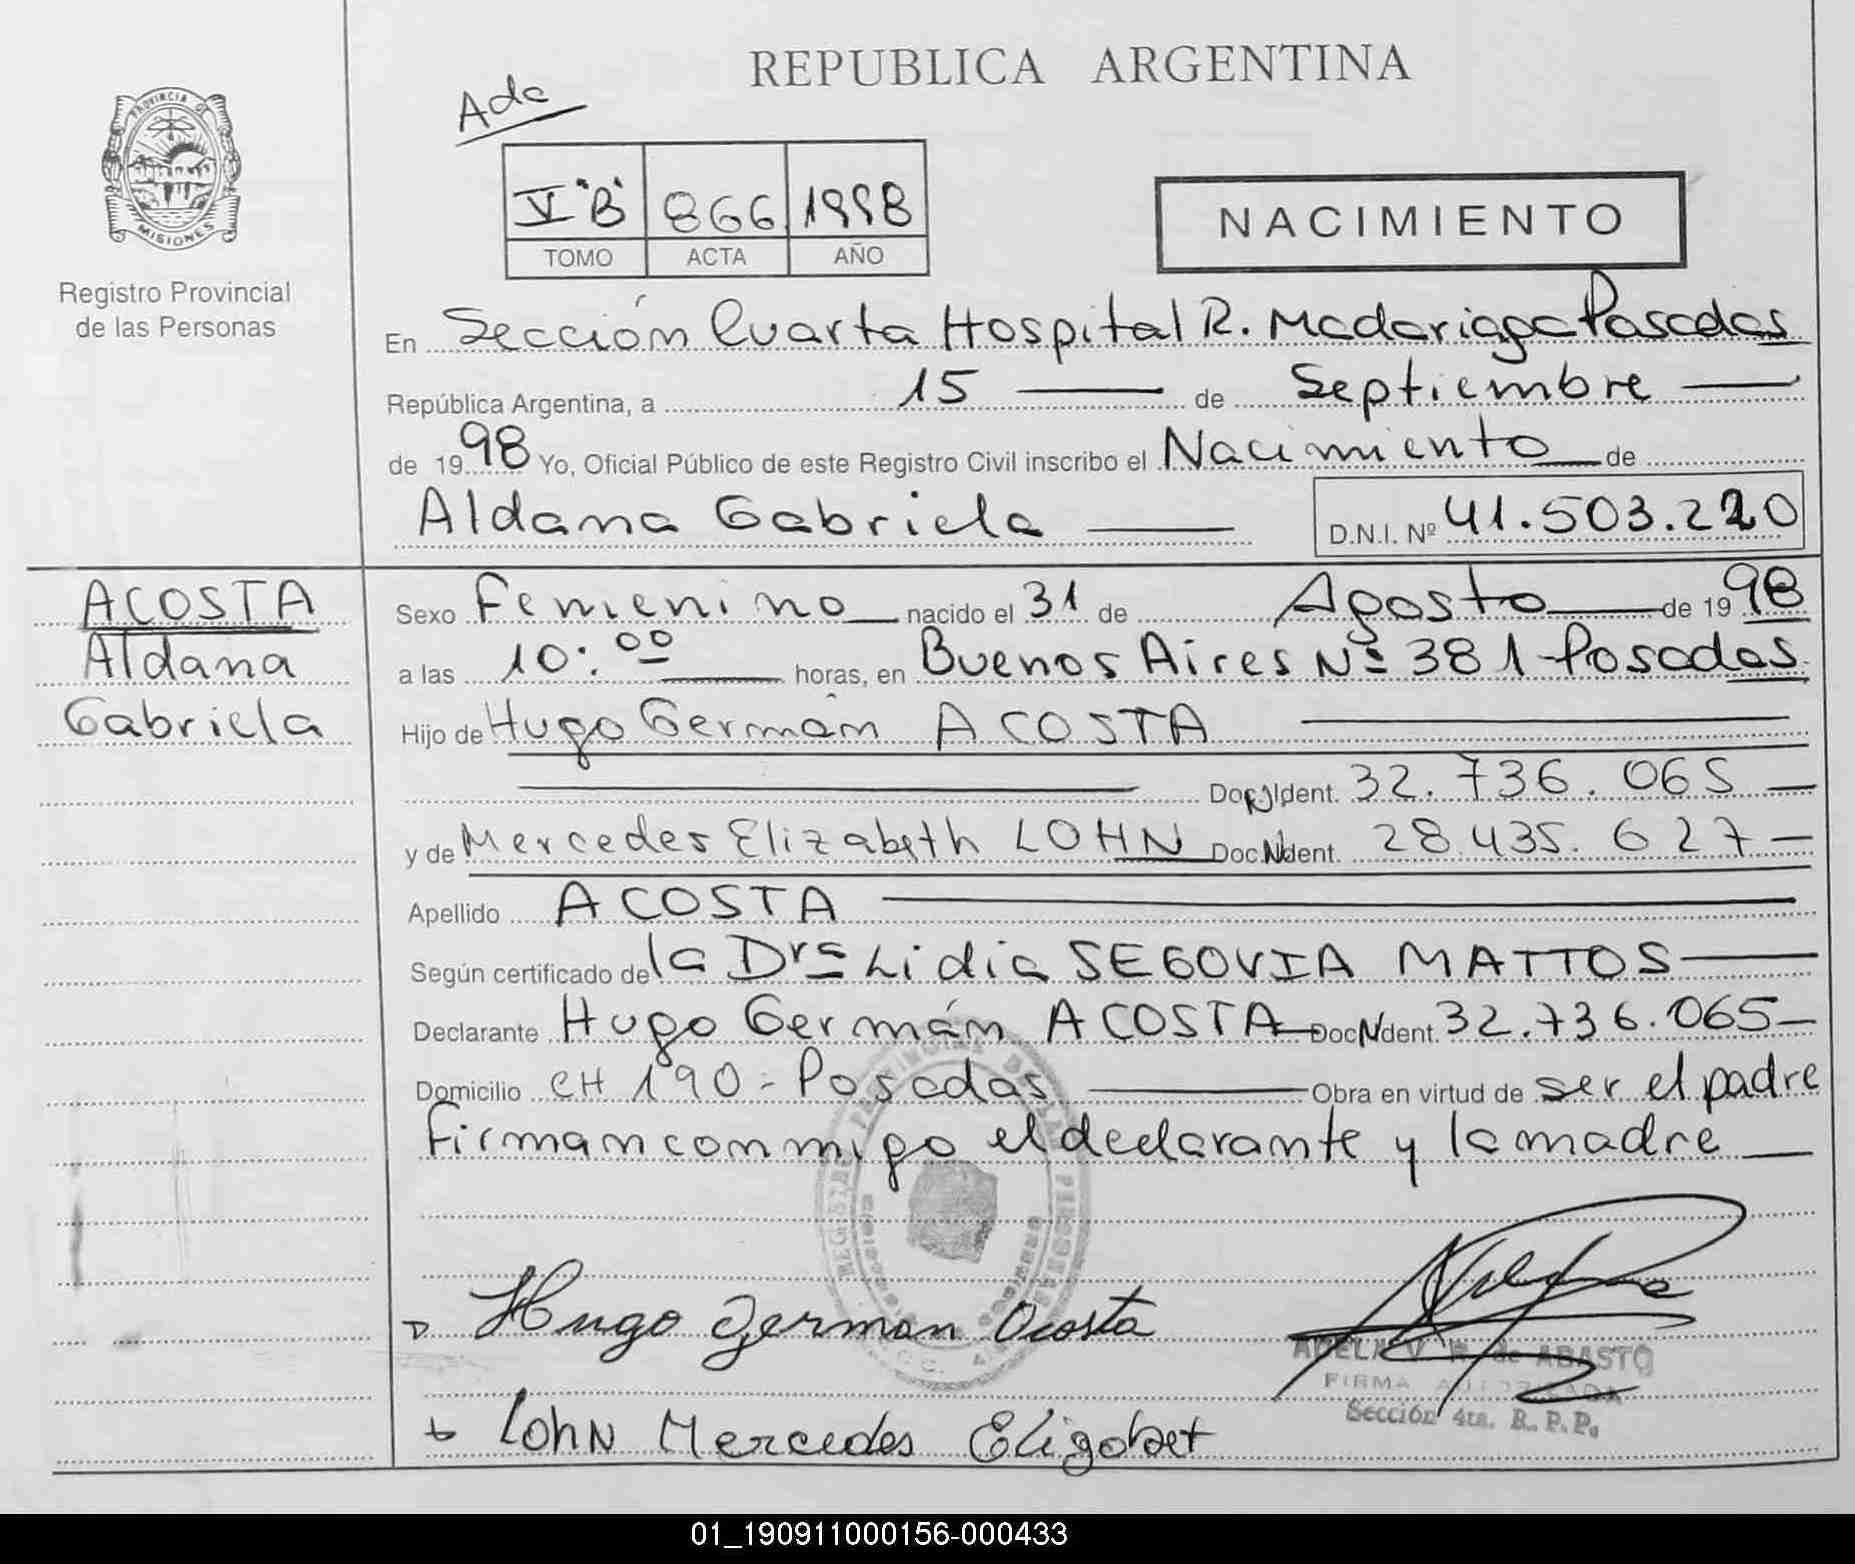 REPUBLICA ARGENTINA
PROVINCIA DE
MISIONES
Registro Provincial
de las Personas
V "B" 866 1998
TOMO ACTA AÑO
NACIMIENTO
En Sección Cuarta Hospital R. Madariaga Posadas
República Argentina, a 15 de Septiembre
de 1998 Yo, Oficial Público de este Registro Civil inscribo el Nacimiento de
Aldana Gabriela D.N.I. Nº 41.503.220
ACOSTA
Aldana
Gabriela
Sexo Femenino nacido el 31 de Agosto de 1998
a las 10:00 horas, en Buenos Aires Nº 381 Posadas
Hijo de Hugo Germán ACOSTA
Doc. Ident. 32.736.065
y de Mercedes Elizabeth LOHN Doc. Ident. 28.435.627
Apellido ACOSTA
Según certificado de la Dra Lidia SEGOVIA MATTOS
Declarante Hugo Germán ACOSTA Doc. Ident. 32.736.065
Domicilio CH 190 - Posadas Obra en virtud de ser el padre
Firman conmigo el declarante y la madre
Hugo German Acosta
ADELA V. de ABASTO
FIRMA AUTORIZADA
Sección 4ta. R. P. P.
LohN Mercedes Eligabet
01_190911000156-000433